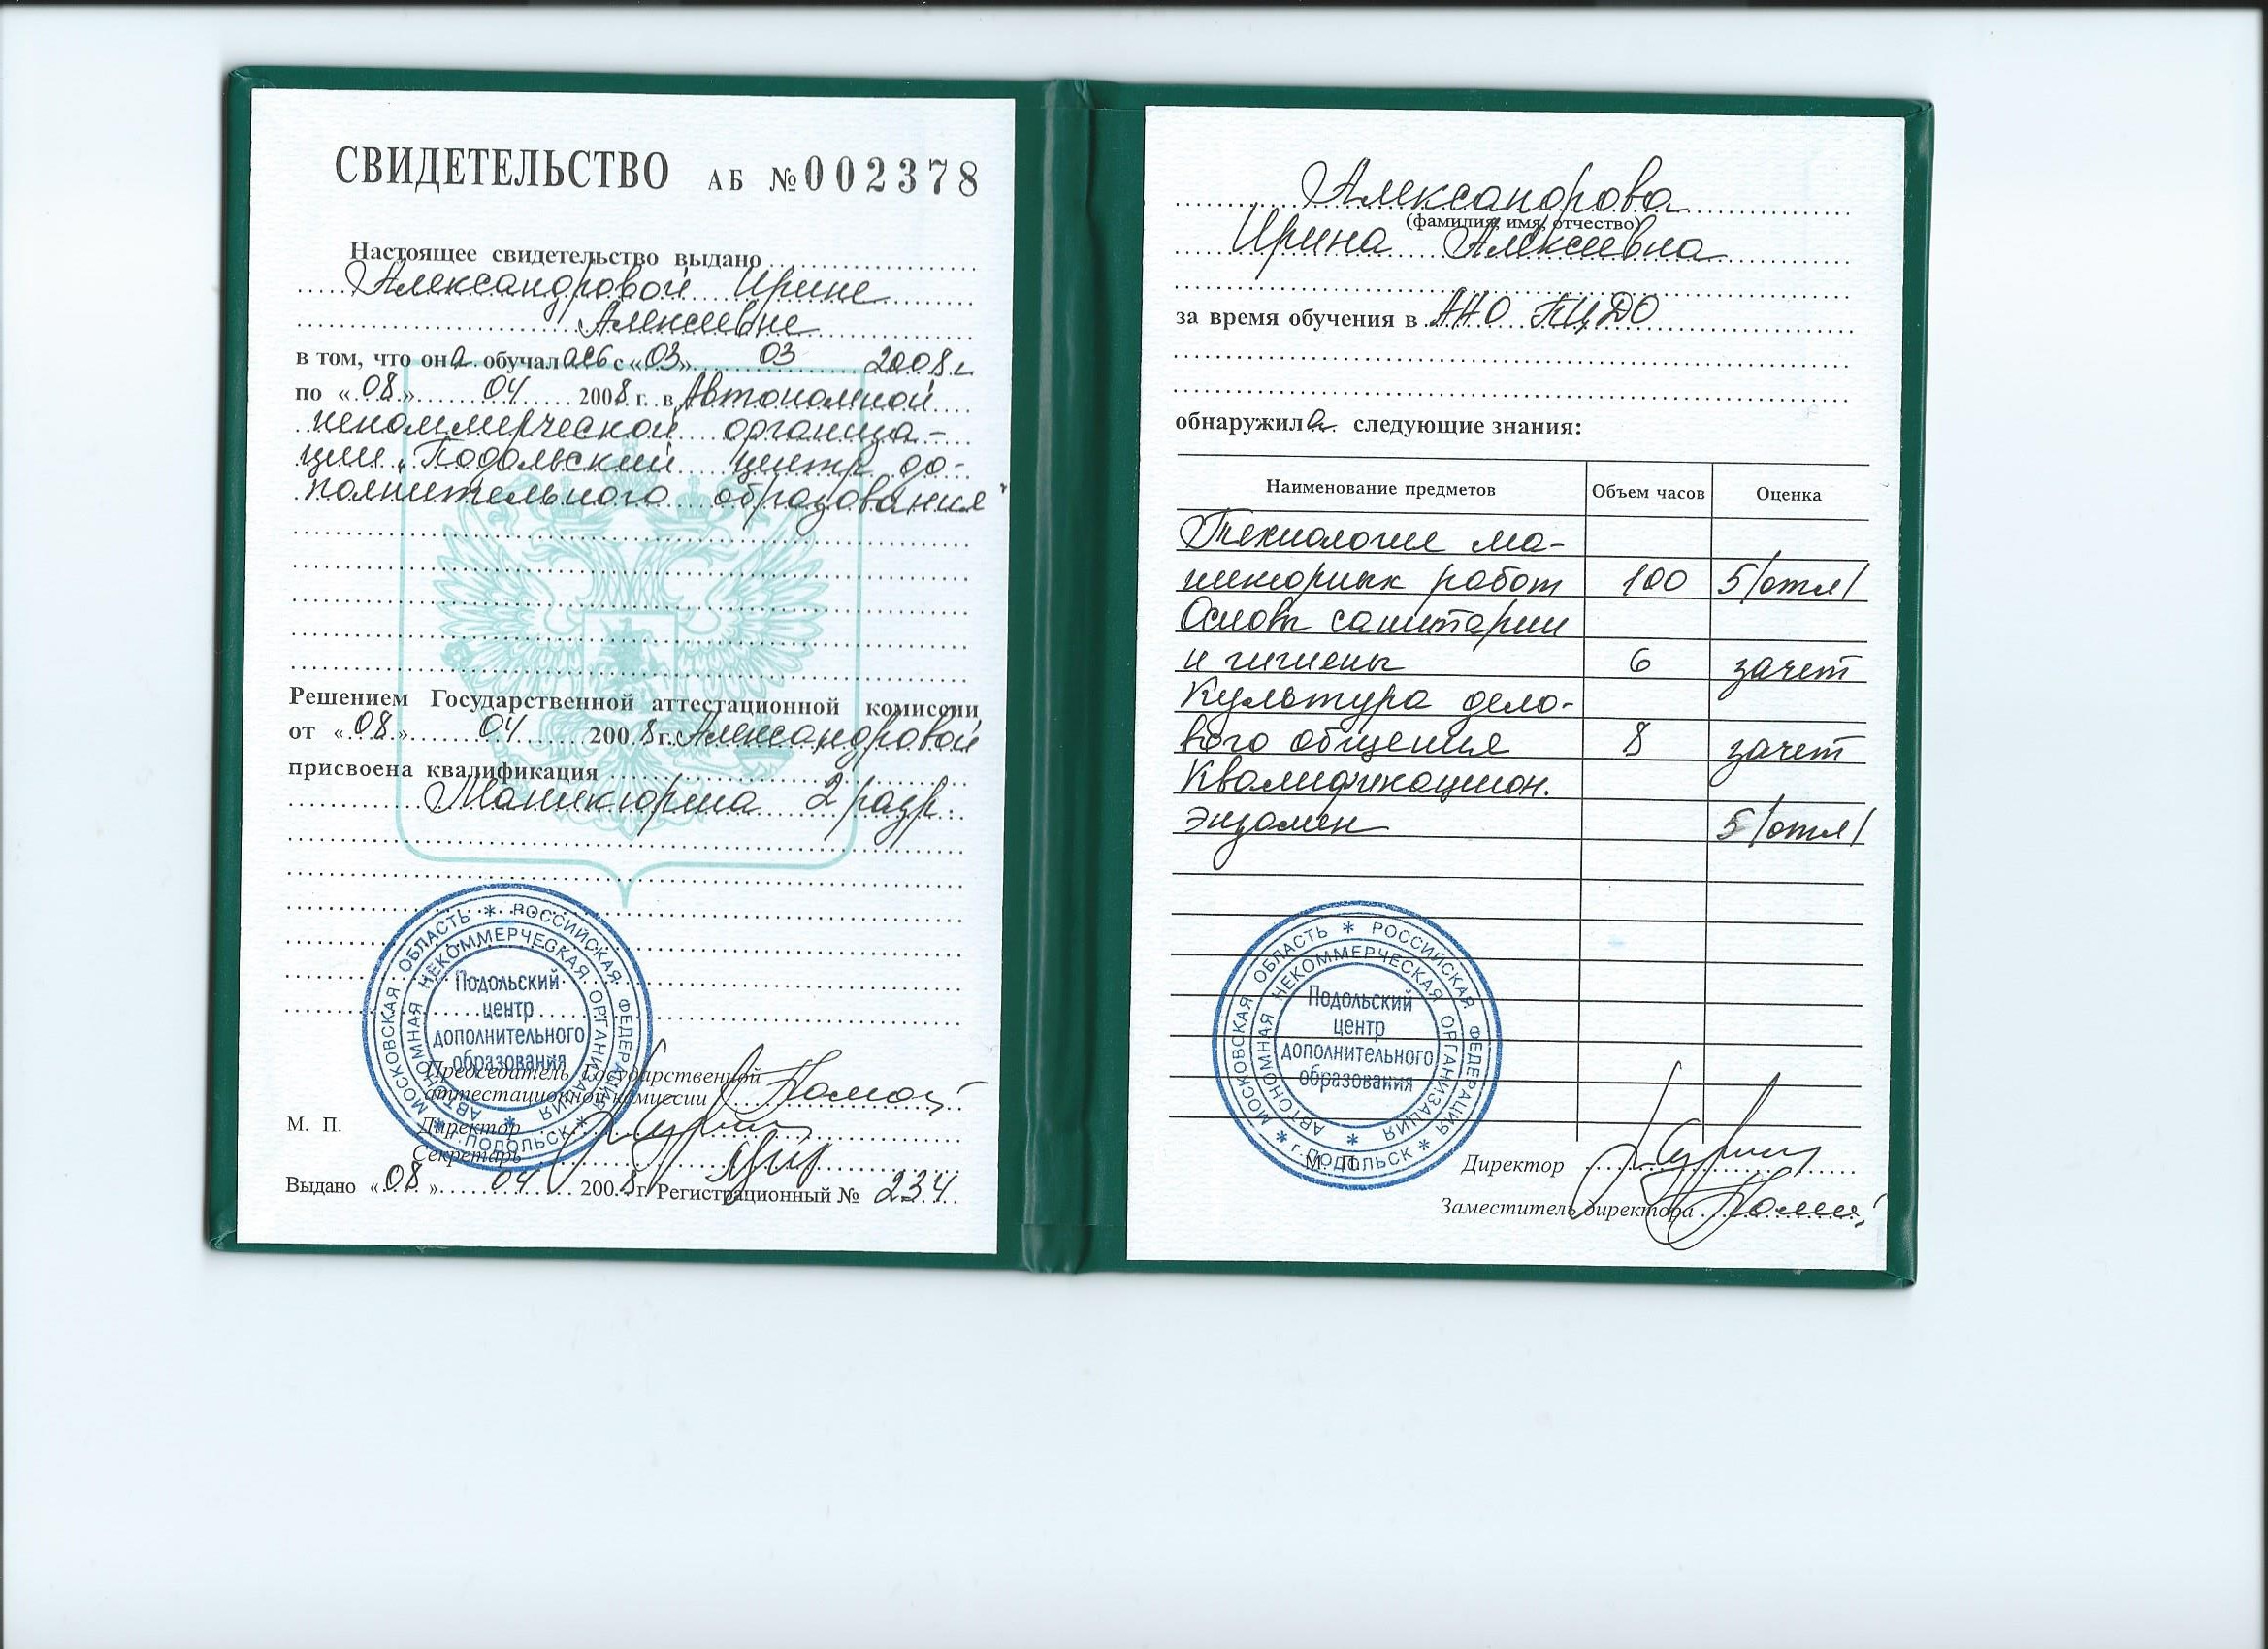 СВИДЕТЕЛЬСТВО АБ №002378
Настоящее свидетельство выдано
Александровой Ирине
Алексеевне
в том, что она обучалась с «03» 03 2008 г.
по «08» 04 2008 г. в Автономной
некоммерческой организа-
ции "Подольский центр до-
полнительного образования"
Решением Государственной аттестационной комиссии
от «08» 04 2008 г. Александровой
присвоена квалификация
Маникюрша 2 разр.
МОСКОВСКАЯ ОБЛАСТЬ * РОССИЙСКАЯ ФЕДЕРАЦИЯ * г. ПОДОЛЬСК *
АВТОНОМНАЯ НЕКОММЕРЧЕСКАЯ ОРГАНИЗАЦИЯ *
Подольский
центр
дополнительного
образования
Председатель Государственной
аттестационной комиссии
М. П. Директор
Секретарь
Выдано «08» 04 2008 г. Регистрационный № 234
Александрова
(фамилия, имя, отчество)
Ирина Алексеевна
за время обучения в АНО ПЦДО
обнаружила следующие знания:
Наименование предметов Объем часов Оценка
Технология ма-
никюрных работ 100 5/отл/
Основы санитарии
и гигиены 6 зачет
Культура дело-
вого общения 8 зачет
Квалификацион.
экзамен 5/отл/
МОСКОВСКАЯ ОБЛАСТЬ * РОССИЙСКАЯ ФЕДЕРАЦИЯ * г. ПОДОЛЬСК *
АВТОНОМНАЯ НЕКОММЕРЧЕСКАЯ ОРГАНИЗАЦИЯ *
Подольский
центр
дополнительного
образования
М. П. Директор
Заместитель директора